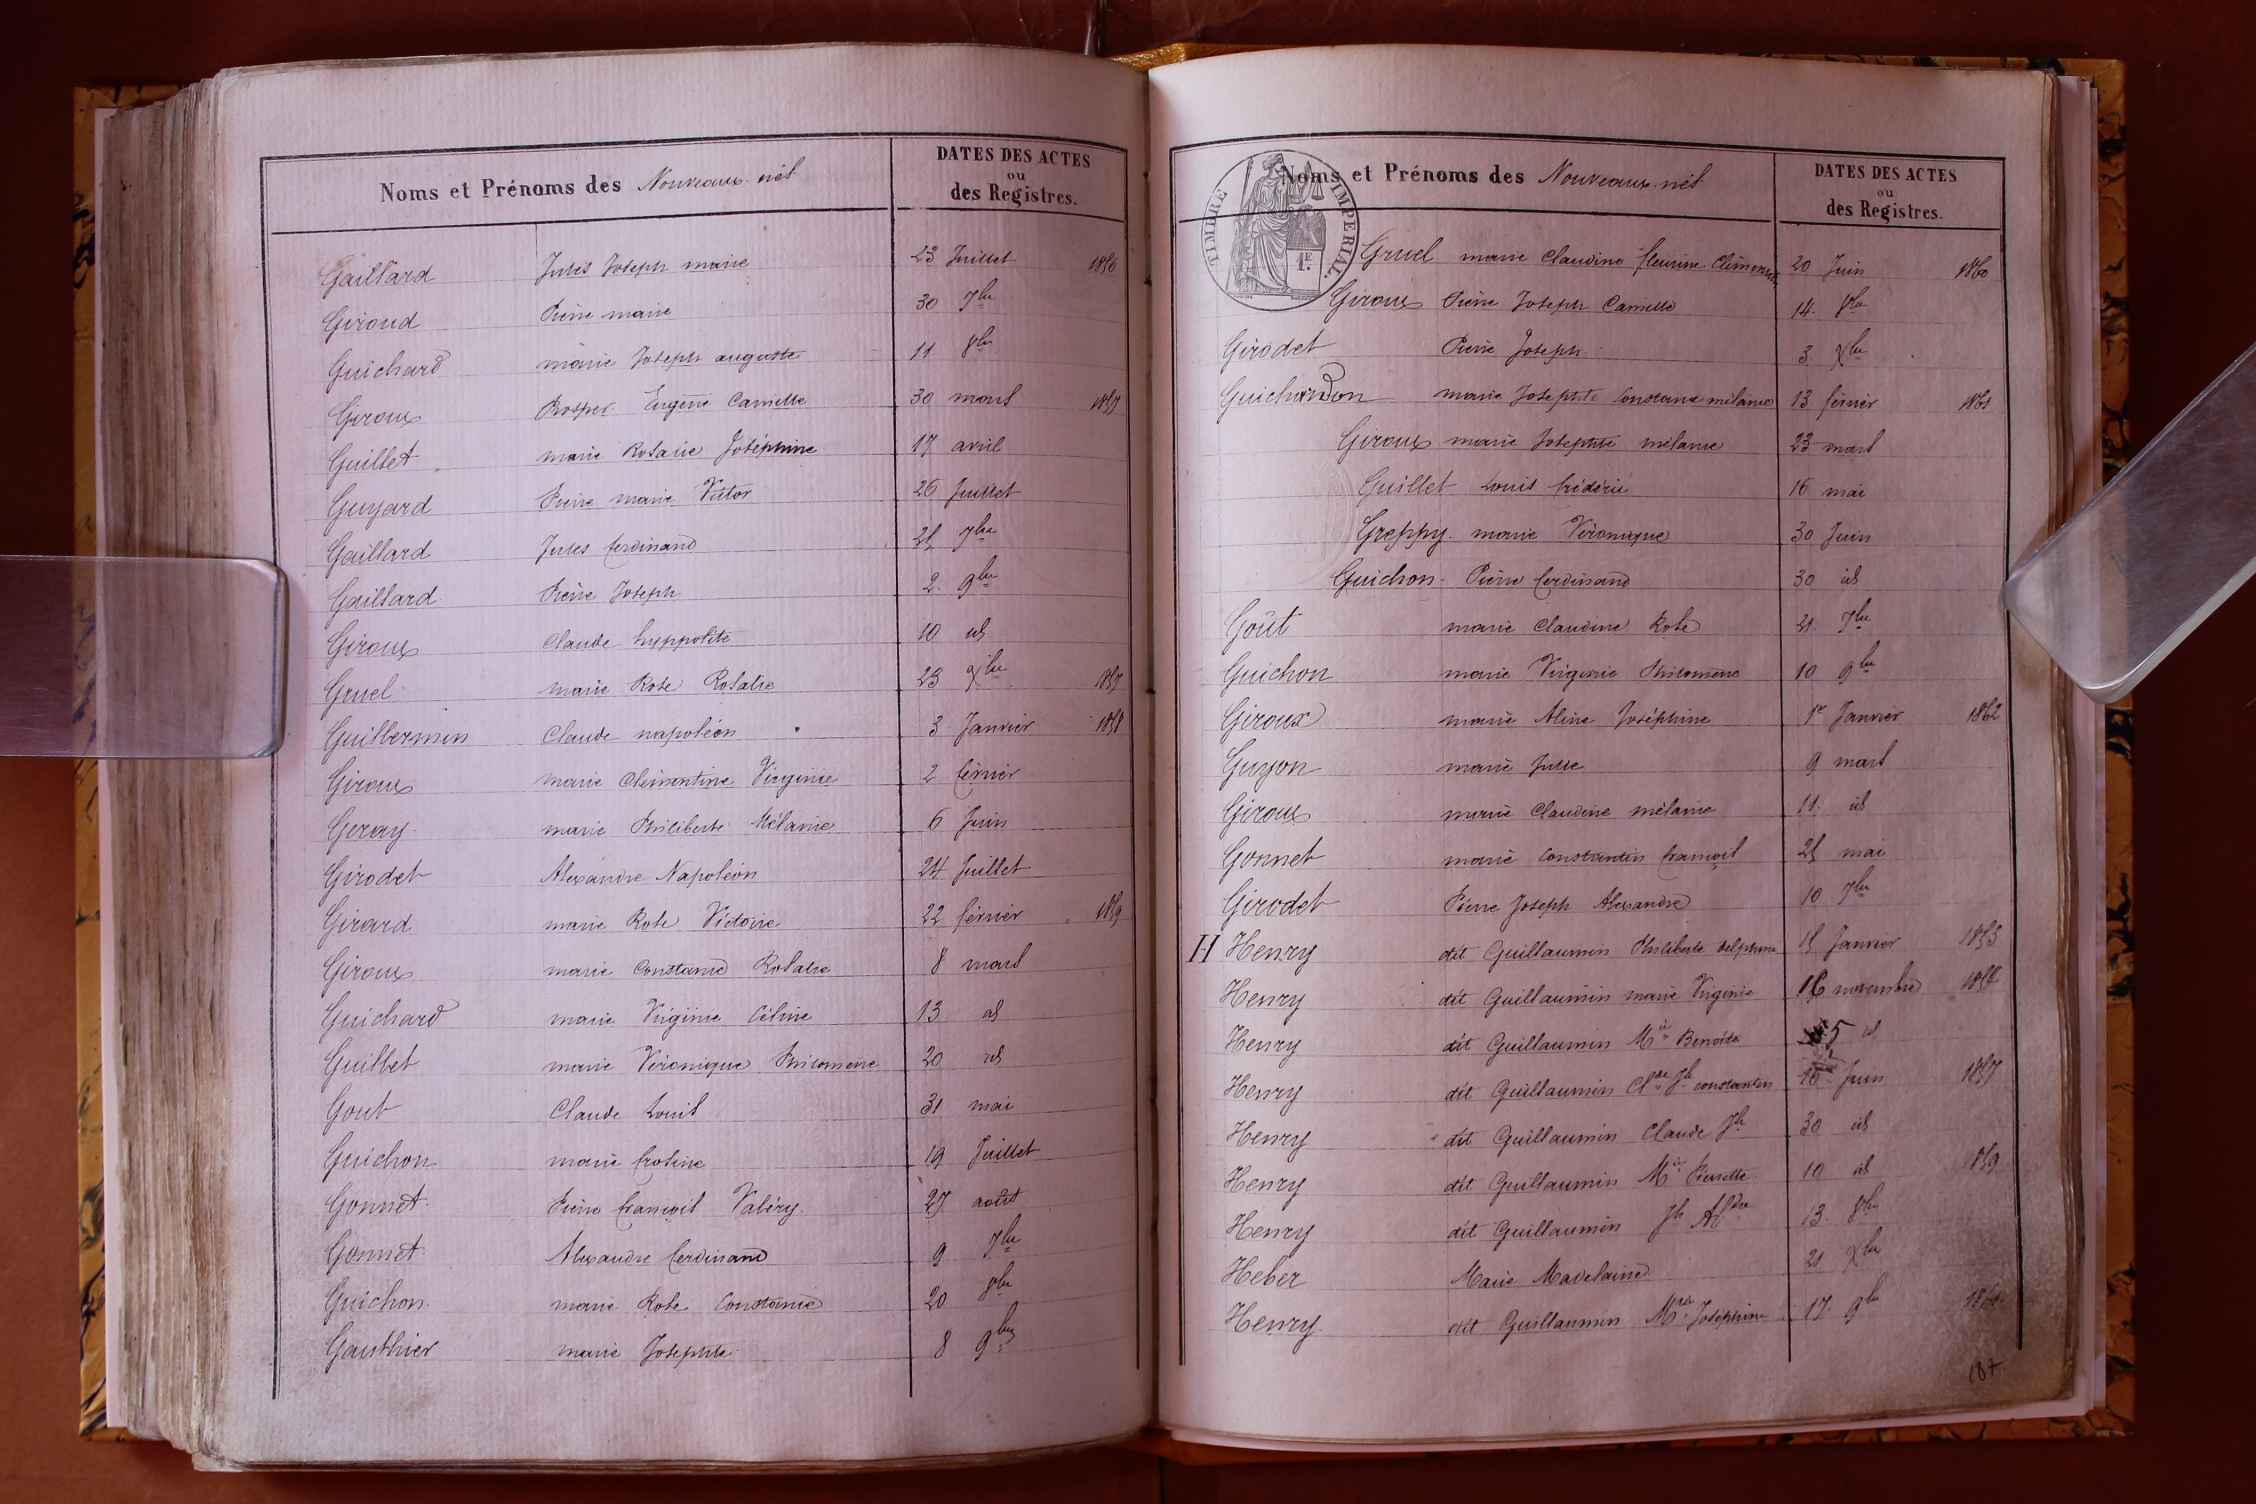 Noms et Prénoms des Nouveaux-nés
DATES DES ACTES
ou
des Registres.
Gaillard Jules Joseph marie 23 Juillet 1856
Giroud Pierre marie 30 7bre
Guichard marie Joseph auguste 11 8bre
Giroux Prosper Eugène Camille 30 mars 1857
Guillet marie Rosalie Joséphine 17 avril
Guyard Pierre marie Victor 26 Juillet
Gaillard Jules ferdinand 25 7bre
Gaillard Pierre Joseph 2 9bre
Giroux Claude hyppolite 10 id
Gruel marie Rose Rosalie 23 Xbre 1857
Guilbermin Claude napoléon 3 Janvier 1858
Giroux marie Clémentine Virginie 2 février
Geray marie Philiberte Mélanie 6 Juin
Girodet Alexandre Napoléon 24 Juillet
Girard marie Rose Victoire 22 février 1859
Giroux marie Constance Rosalie 8 mars
Guichard marie Virginie Céline 13 id
Guillet marie Véronique Philomène 20 id
Gout Claude Louis 31 mai
Guichon marie frosine 19 Juillet
Gonnet Pierre françois Valéry 27 août
Gonnet Alexandre ferdinand 9 7bre
Guichon marie Rose Constance 20 8bre
Gauthier marie Josephte 8 9bre
TIMBRE IMPERIAL.
1E.
Noms et Prénoms des Nouveaux-nés
DATES DES ACTES
ou
des Registres.
Gruel marie Claudine fleurine Clémence 20 Juin 1860
Giroux Pierre Joseph Camille 14 8bre
Girodet Pierre Joseph 3 Xbre
Guichardon marie Josephte Constance mélanie 13 février 1861
Giroux marie Josephte mélanie 23 mars
Guillet Louis frédéric 16 mai
Greppy marie Véronique 30 Juin
Guichon Pierre ferdinand 30 id
Goût marie Claudine Rose 21 7bre
Guichon marie Virginie Philomène 10 9bre
Giroux marie Aline Joséphine 1er Janvier 1862
Guyon marie Julie 9 mars
Giroux marie Claudine mélanie 11 id
Gonnet marie Constantin françois 25 mai
Girodet Pierre Joseph Alexandre 10 7bre
H Henry dit Guillaumin Philiberte delphine 15 Janvier 1853
Henry dit Guillaumin marie Virginie 16 novembre
Henry dit Guillaumin Mie Benoite 5 id
Henry dit Guillaumin Cde Jh constantin Juin 1857
Henry dit Guillaumin Claude Jh 30 id
Henry dit Guillaumin Mie Pierrette 10 id 1859
Henry dit Guillaumin Jh Aldre 13 8bre
Heber Marie Madelaine 21 Xbre
Henry dit Guillaumin Mie Joséphine 17 9bre
187